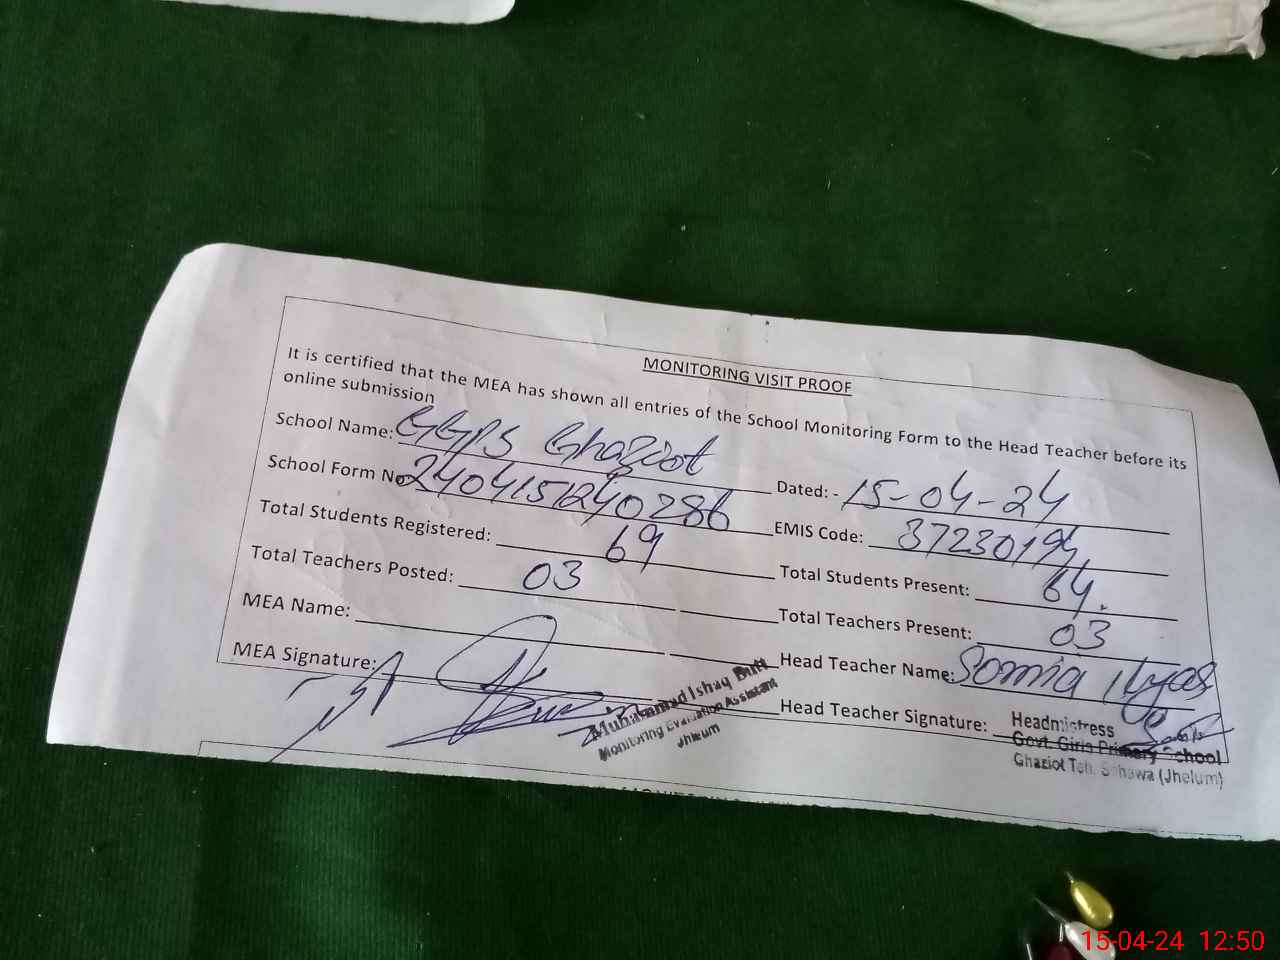 MONITORING VISIT PROOF
It is certified that the MEA has shown all entries of the School Monitoring Form to the Head Teacher before its
online submission
School Name: GGPS Ghaziot Dated: - 15-04-24
School Form No 2404151240286 EMIS Code: 37230194
Total Students Registered: 69 Total Students Present: 64.
Total Teachers Posted: 03 Total Teachers Present: 03
MEA Name: Head Teacher Name: Somia Ilyas
MEA Signature: Head Teacher Signature:
Muhammad Ishaq Butt
Monitoring Evaluation Assistant
Jhleum
Headmistress
Govt. Girls Primary School
Ghaziot Teh. Sohawa (Jhelum)
15-04-24 12:50